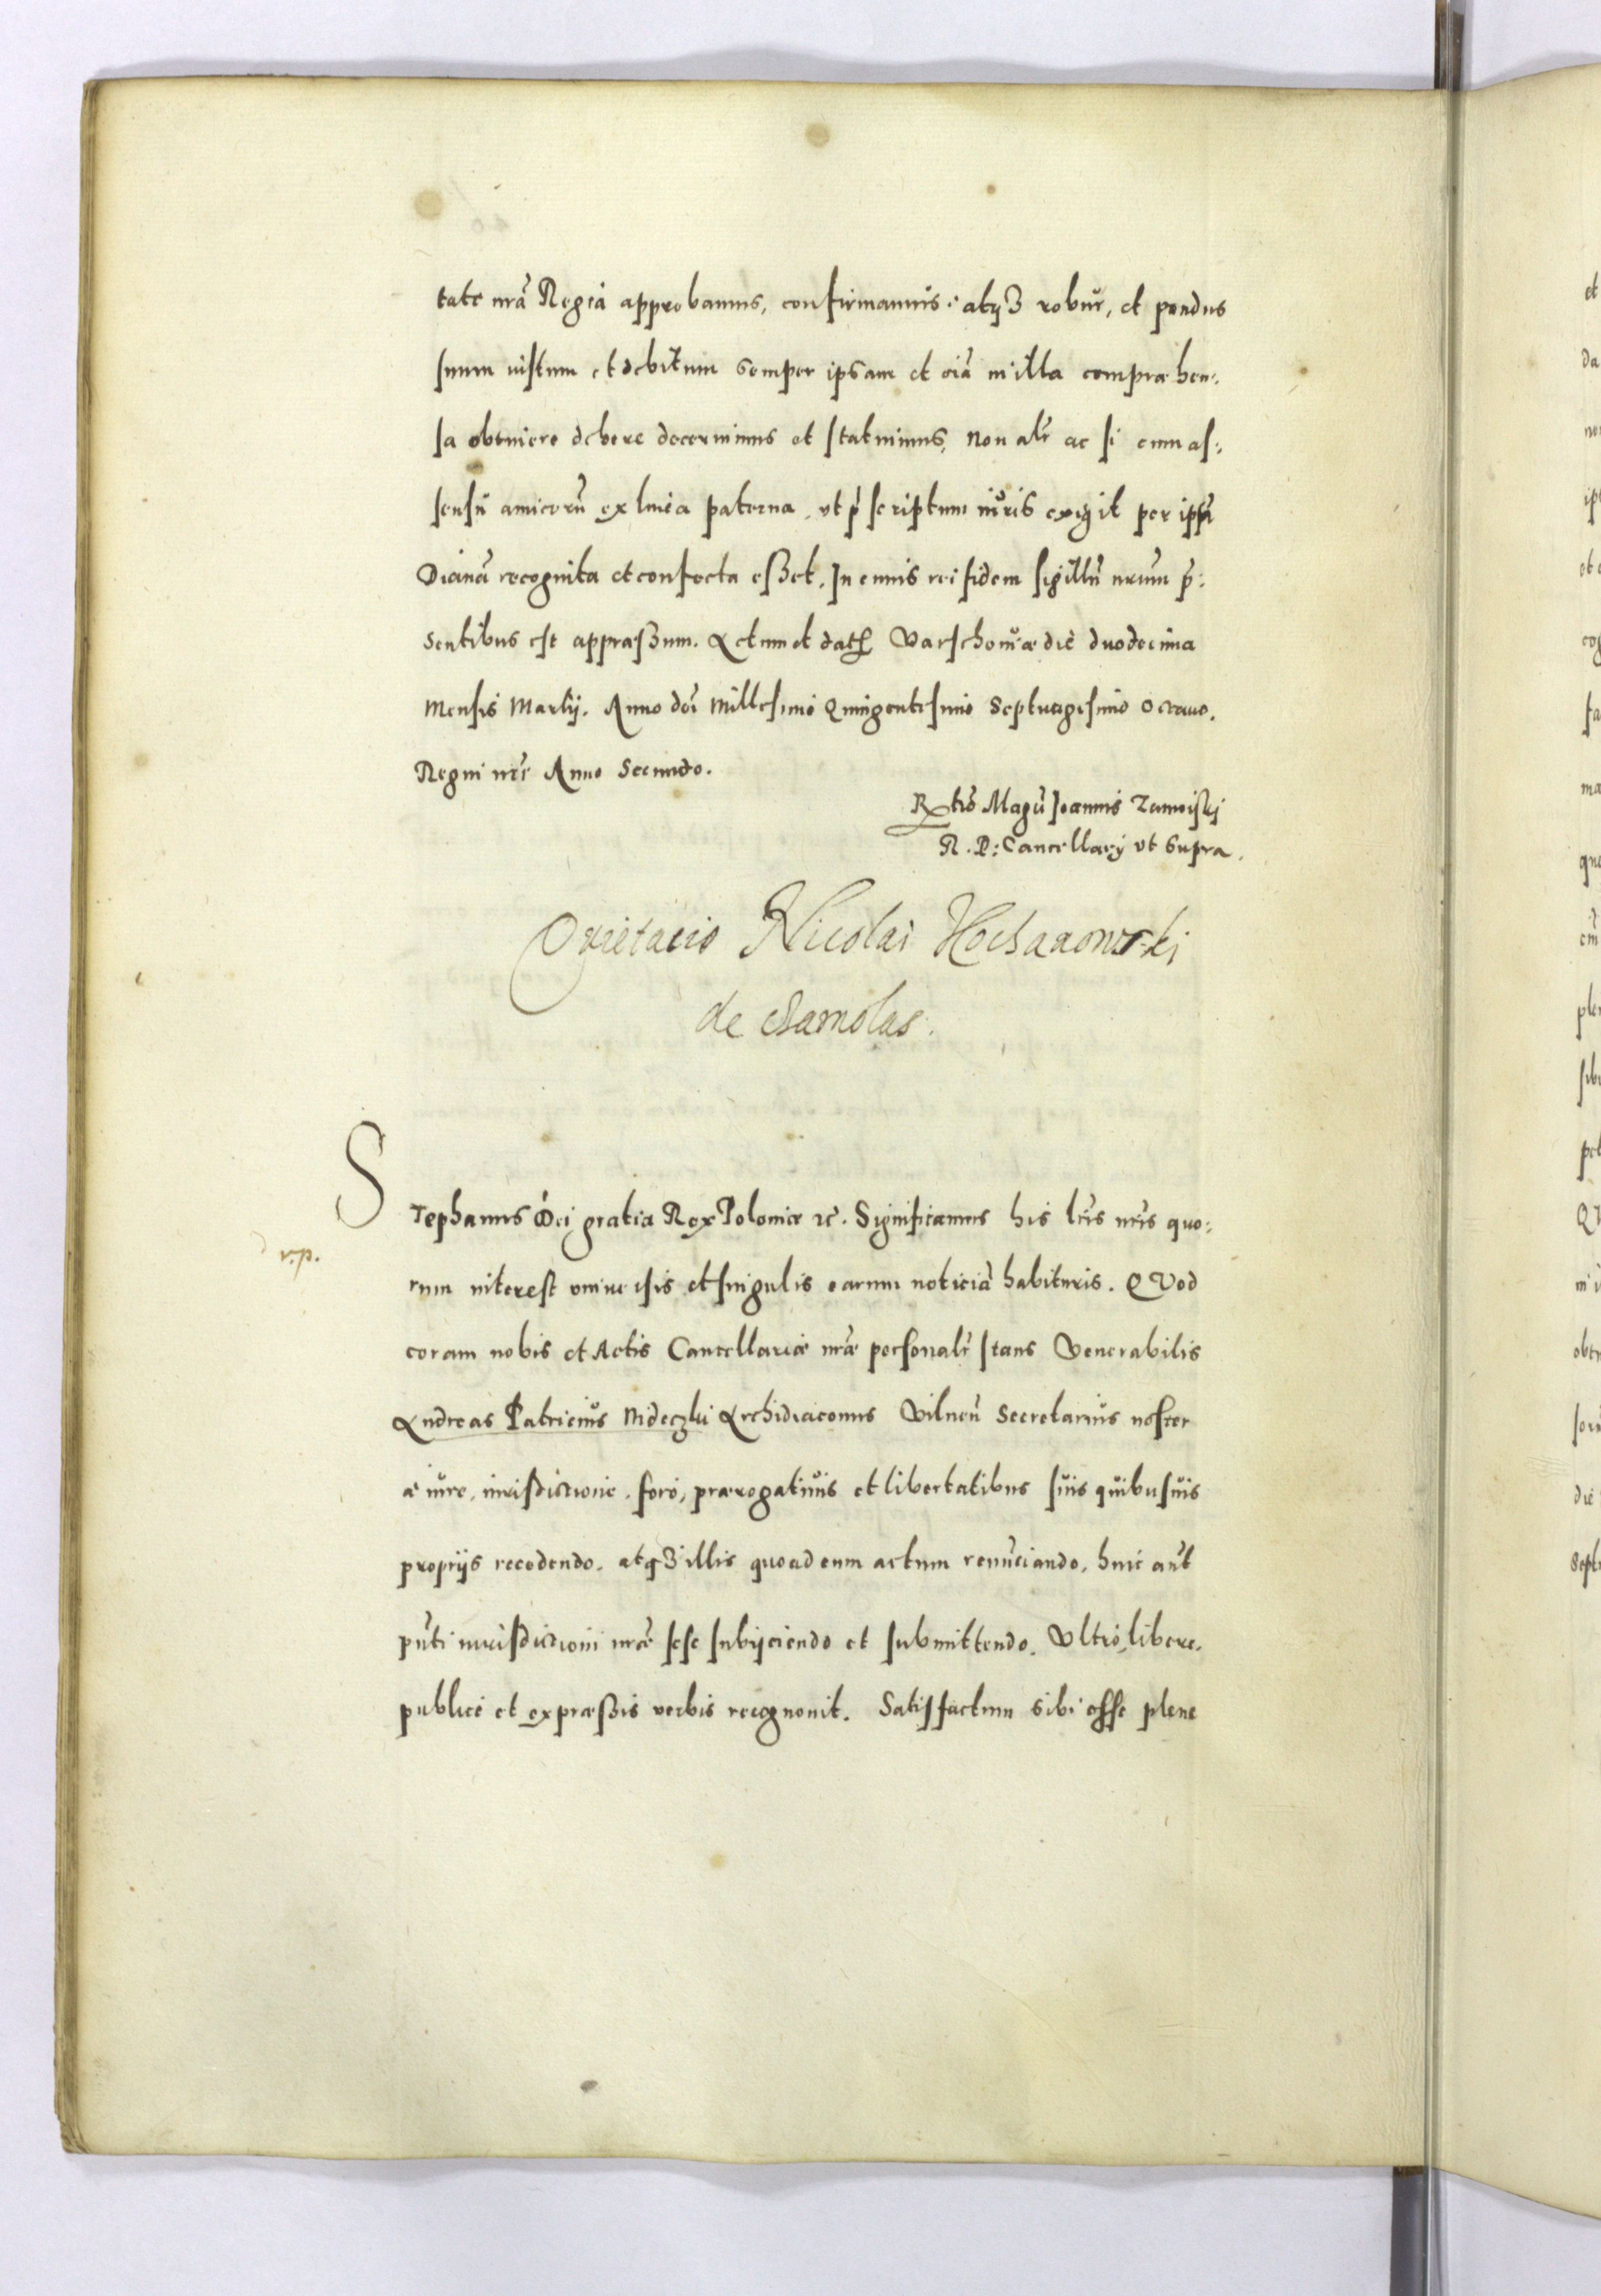 tate nrã Regia approbamus, confirmamus: atqȝ robur, et pondus
suum iustum et debitum semper ipsam et oiã in illa compræhen:
sa obtinere debere decernimus et statuimus, Non alr ac si cum as:
sensũ amicorũ ex linea paterna, vt p̃scriptum iuris exigit per ipsã
Dianã recognita et confecta eßet. In cuius rei fidem sigillũ nrum p̃:
sentibus est appræßum. Actum et dat Varschouiæ die duodecima
Mensis Martij. Anno doi Millesimo Quingentesimo Septuagesimo Octauo.
Regni nri Anno Secundo.
Rtio Magci Joannis Zamoiskj
R. P: Cancellarij vt supra.
Qvietacio Nicolai Kochanowskj
de Czarnolas.
Stephanus Dei gratia Rex Poloniæ etc. Significamus his lris nris quo:
v.p.
rum interest vniuersis et singulis earum noticiã habituris. QVod
coram nobis et Actis Cancellariæ nræ personalr stans Venerabilis
Andreas Patricius Nideczki Archidiaconus Vilneñ Secretarius noster
a iure, iurisdictione, foro, prærogatiuis et libertatibus suis quibusuis
proprijs recedendo, atqȝ illis quoad eum actum renũciando, huic aũt
pũti iurisdictioni nræ sese subijciendo et submittendo. Vltro, libere,
publice et expræßis verbis recognouit. Satisfactum sibi esse plene